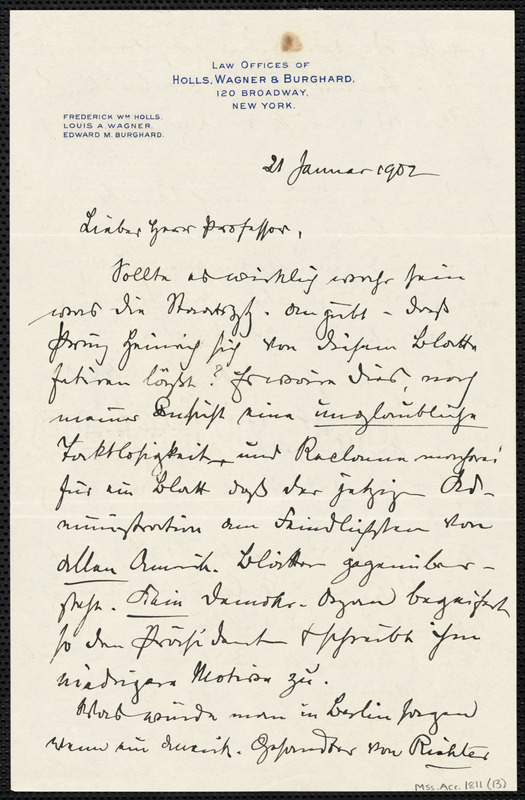 LAW OFFICES OF
HOLLS, WAGNER & BURGHARD,
120 BROADWAY,
NEW YORK.
FREDERICK WM HOLLS.
LOUIS A. WAGNER.
EDWARD M. BURGHARD.
21 Januar 1902
Lieber Herr Professor,
Sollte es wirklich wahr sein
was die Staatsztg. angibt - daß
Prinz Heinrich sich von diesem Blatte
fetiren läßt? Es wäre dies, nach
meiner Ansicht eine unglaubliche
Taktlosigkeit, und Reclame macherei
für ein Blatt daß der jetzigen Ad-
ministration am Feindlichsten von
allen Amerik. Blättern gegenüber-
steht. Kein Demokr. Organ begeifert
so den Präsident & schreibt ihm
niedrigere Motive zu.
Was würde man in Berlin sagen
wenn ein amerik. Gesandter von Richter
Mss. Acc. 1811 (13)